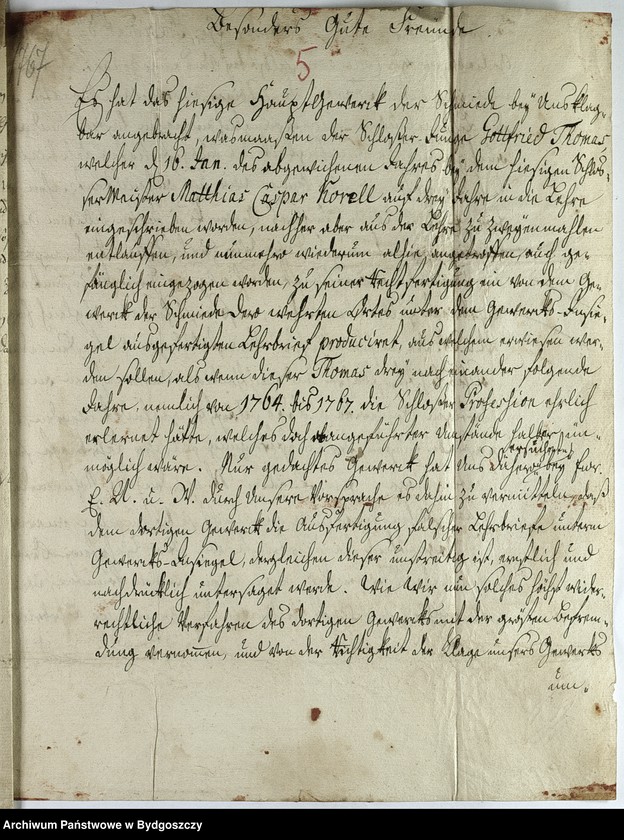 Besonders Gute Freunde
767
5
Es hat das hiesige HauptGewerck der Schmiede bey Uns klag-
bar angebracht, wasmaaßen der Schloßer-Junge Gottfried Thomas
welcher d. 16. Jan. des abgewichenen Jahres bey dem hiesigen Schlos-
ser Meister Matthias Caspar Korell auf drey Jahre in die Lehre
eingeschrieben worden, nachher aber aus der Lehre zu zweyenmahlen
entlauffen, und nunmehro wiederum alhie angetroffen, auch ge-
fänglich eingezogen worden, zu seiner Rechtfertigung ein von dem Ge-
werck der Schmiede dero wehrten Ortes unter dem Gewercks-Insie-
gel ausgefertigten Lehrbrief produciret, aus welchem erwiesen wer-
den sollen, als wenn dieser Thomas drey nach einander folgende
Jahre, nemlich von 1764. bis 1767. die Schloßer Profession ehrlich
erlernet hätte, welches doch angeführter Umstände halber un-
möglich wäre. Nur gedachtes Gewerck hat Uns dahero ersuchet bey
E. A. u. W. durch Unsere Vorsprache es dahin zu vermitteln, daß
dem dortigen Gewerck die Ausfertigung falscher Lehrbriefe unterm
Gewercks-Insiegel, dergleichen dieser unstreitig ist, ernstlich und
nachdrücklich untersaget werde. Wie Wir nun solches höchst wider-
rechtliche Verfahren des dortigen Gewercks mit der größten Befrem-
dung vernommen, und von der Richtigkeit der Klage unsers Gewercks
um-
Archiwum Państwowe w Bydgoszczy